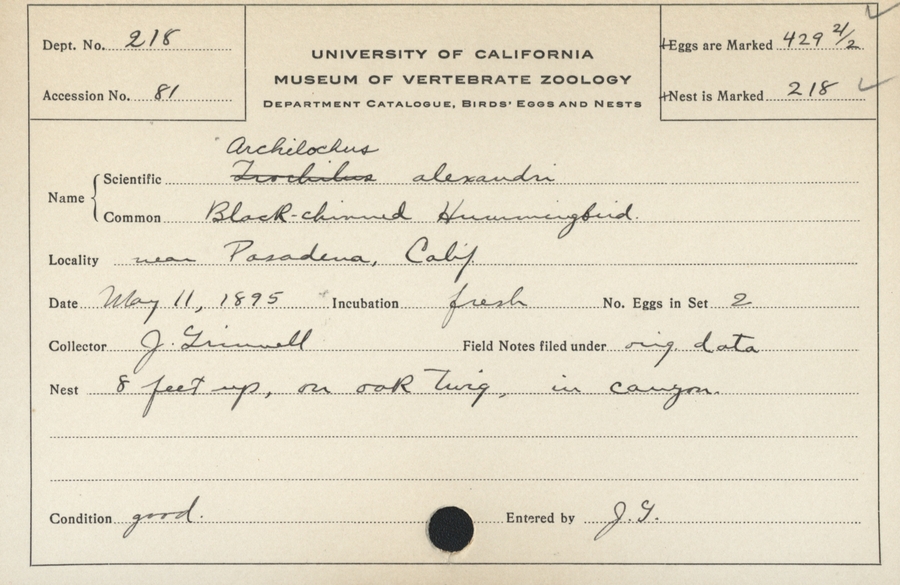 Dept. No. 218
Accession No. 81
UNIVERSITY OF CALIFORNIA
MUSEUM OF VERTEBRATE ZOOLOGY
DEPARTMENT CATALOGUE, BIRDS' EGGS AND NESTS
Eggs are Marked 429 2/2
Nest is Marked 218
Archilochus
Name Scientific Trochilus alexandri
Common Black-chinned Hummingbird.
Locality near Pasadena, Calif.
Date May 11, 1895 Incubation fresh No. Eggs in Set 2
Collector J. Grinnell Field Notes filed under orig. data
Nest 8 feet up, on oak twig, in canyon.
Condition good. Entered by J. G.